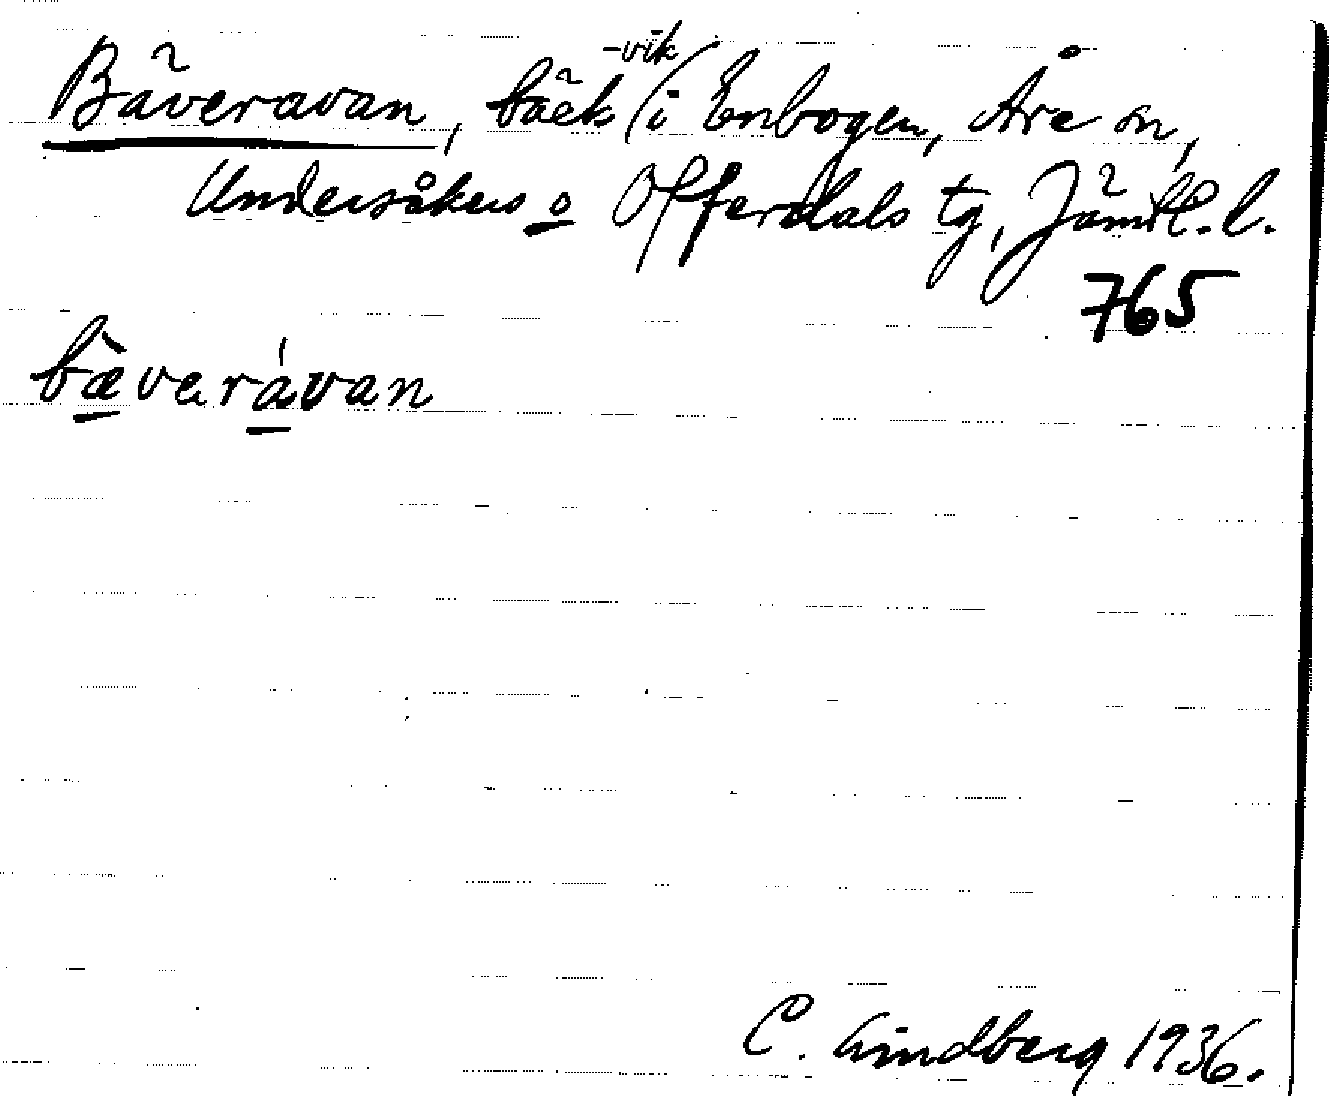 Bäveravan, bäck(-vik i Enbogen, Åre sn,
Undersåkers o Offerdals tg, Jämtl. l.
765
bæverávan
C. Lindberg 1936.